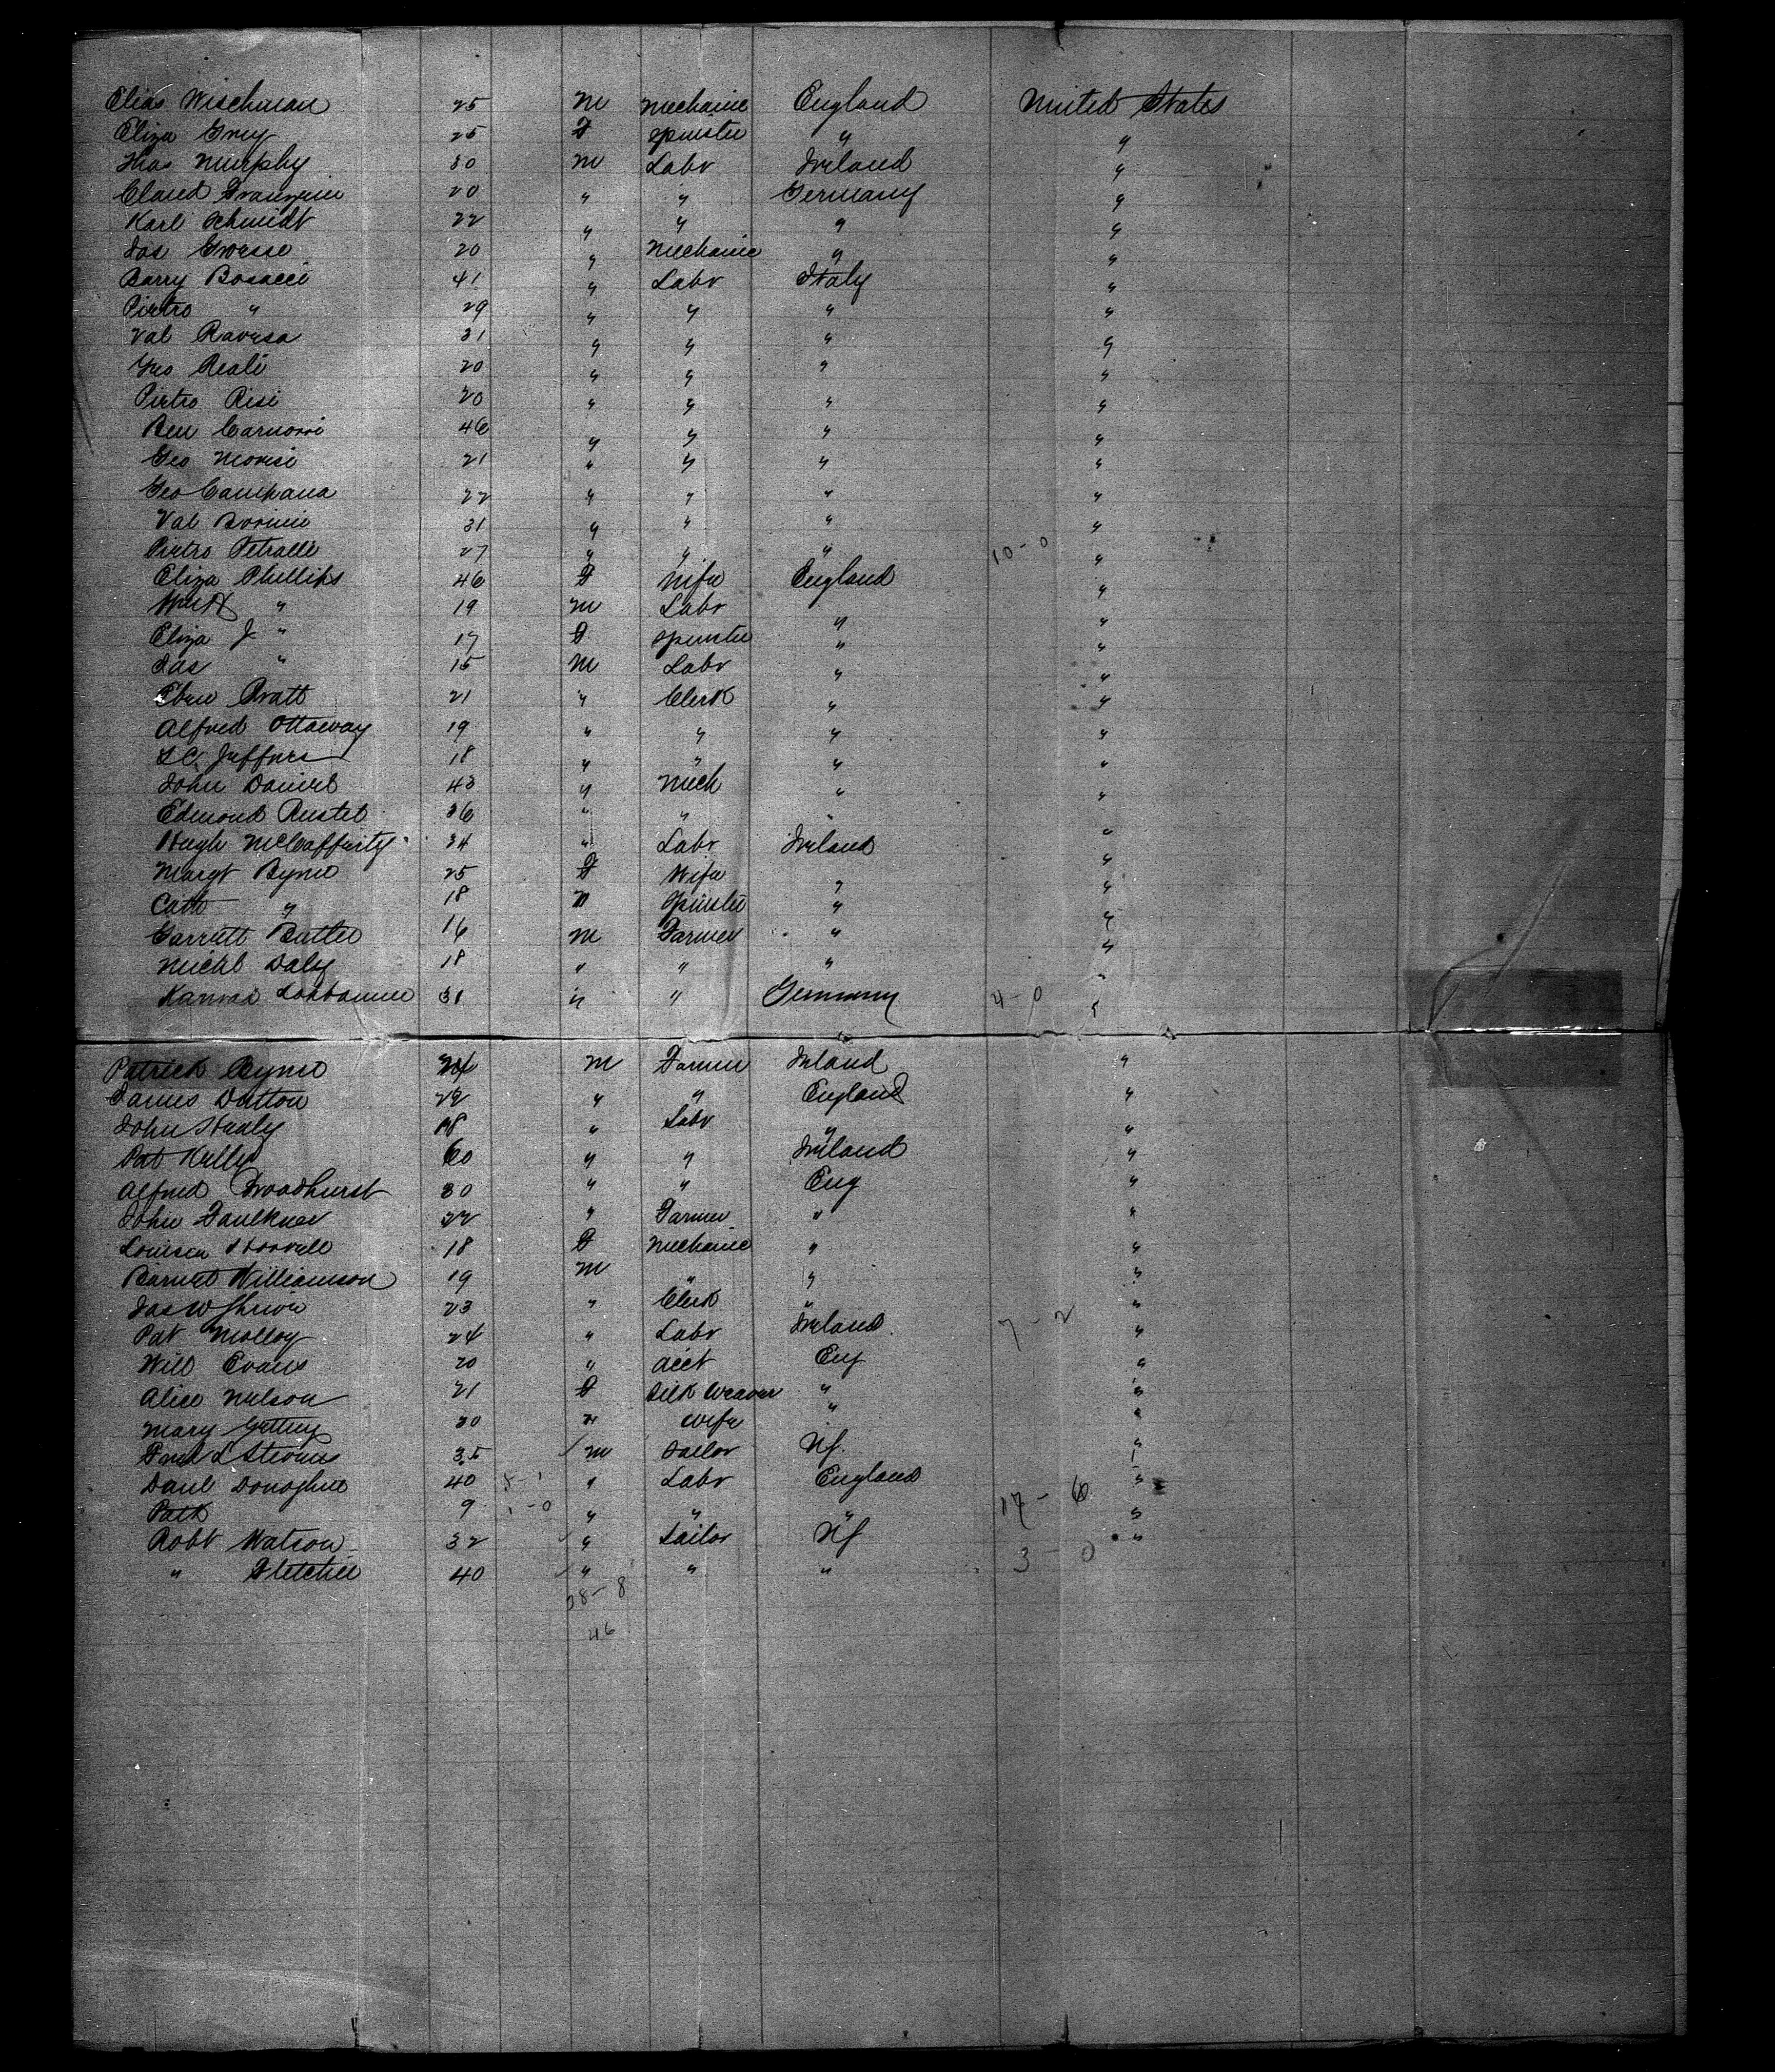 Elias Wischman 25 M Mechanic England United States
Eliza Grey 25 F Spinster " "
Thos Murphy 30 M Labr Ireland "
Claud 20 " " Germany "
Karl Schmidt 22 " " " "
Jos Grosse 20 " Mechanic " "
Barry Bosacci 41 " Labr Italy "
Pietro " 29 " " " "
Val Ravesa 31 " " " "
Geo Reali 20 " " " "
Pietro Risi 20 " " " "
Ben 46 " " " "
Geo Morisi 21 " " " "
Geo Campana 22 " " " "
Val 31 " " " "
Pietro Petralli 27 " " " 10-0 "
Eliza Phillips 46 F Wife England "
" 19 M Labr " "
Eliza J " 17 F Spinster " "
Jas " 15 M Labr " "
Eben Pratt 21 " Clerk " "
Alfred Ottaway 19 " " " "
Jeffers 18 " " " "
John Daniel 43 " Mech " "
Edmond Rustel 36 " " " "
Hugh McCafferty 34 " Labr Ireland "
Margt Byrne 25 F Wife " "
Cath " 18 " Spinster " "
Garrett Butler 16 M Farmer " "
Michl Daly 18 " " " "
31 " " Germany 4-0 "
Patrick Byrne 24 M Farmer Ireland "
James Dutton 22 " " England "
John Healy 18 " Labr " "
Pat Kelly 60 " " Ireland "
Alfred Broadhurst 30 " " Eng "
John Faulkner 22 " Farmer " "
Louisa 18 F Mechanic " "
Barnet Williamson 19 M " " "
Jas W 23 " Clerk " "
Pat Molloy 24 " Labr Ireland 7-2 "
Will Evans 20 " Acct Eng "
Alice Nelson 21 F Silk Weaver " "
Mary 30 " Wife " "
Fred L Stevens 35 M Sailor Nf "
Danl Donoghue 40 " Labr England "
Patk 9 1-0 " " " 17-6 "
Robt Watson 32 " Sailor Nf "
" Fletcher 40 " " " 3-0
38-8
46